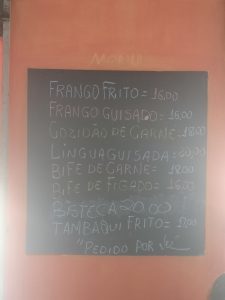 MENU
FRANGO FRITO = 16,00
FRANGO GUISADO = 16,00
COZIDÃO DE CARNE = 18,00
LINGUA GUISADA = 20,00
BIFE DE CARNE = 18,00
BIFE DE FIGADO = 16,00
BISTECA 20,00
TAMBAQUI FRITO =
"PEDIDO POR